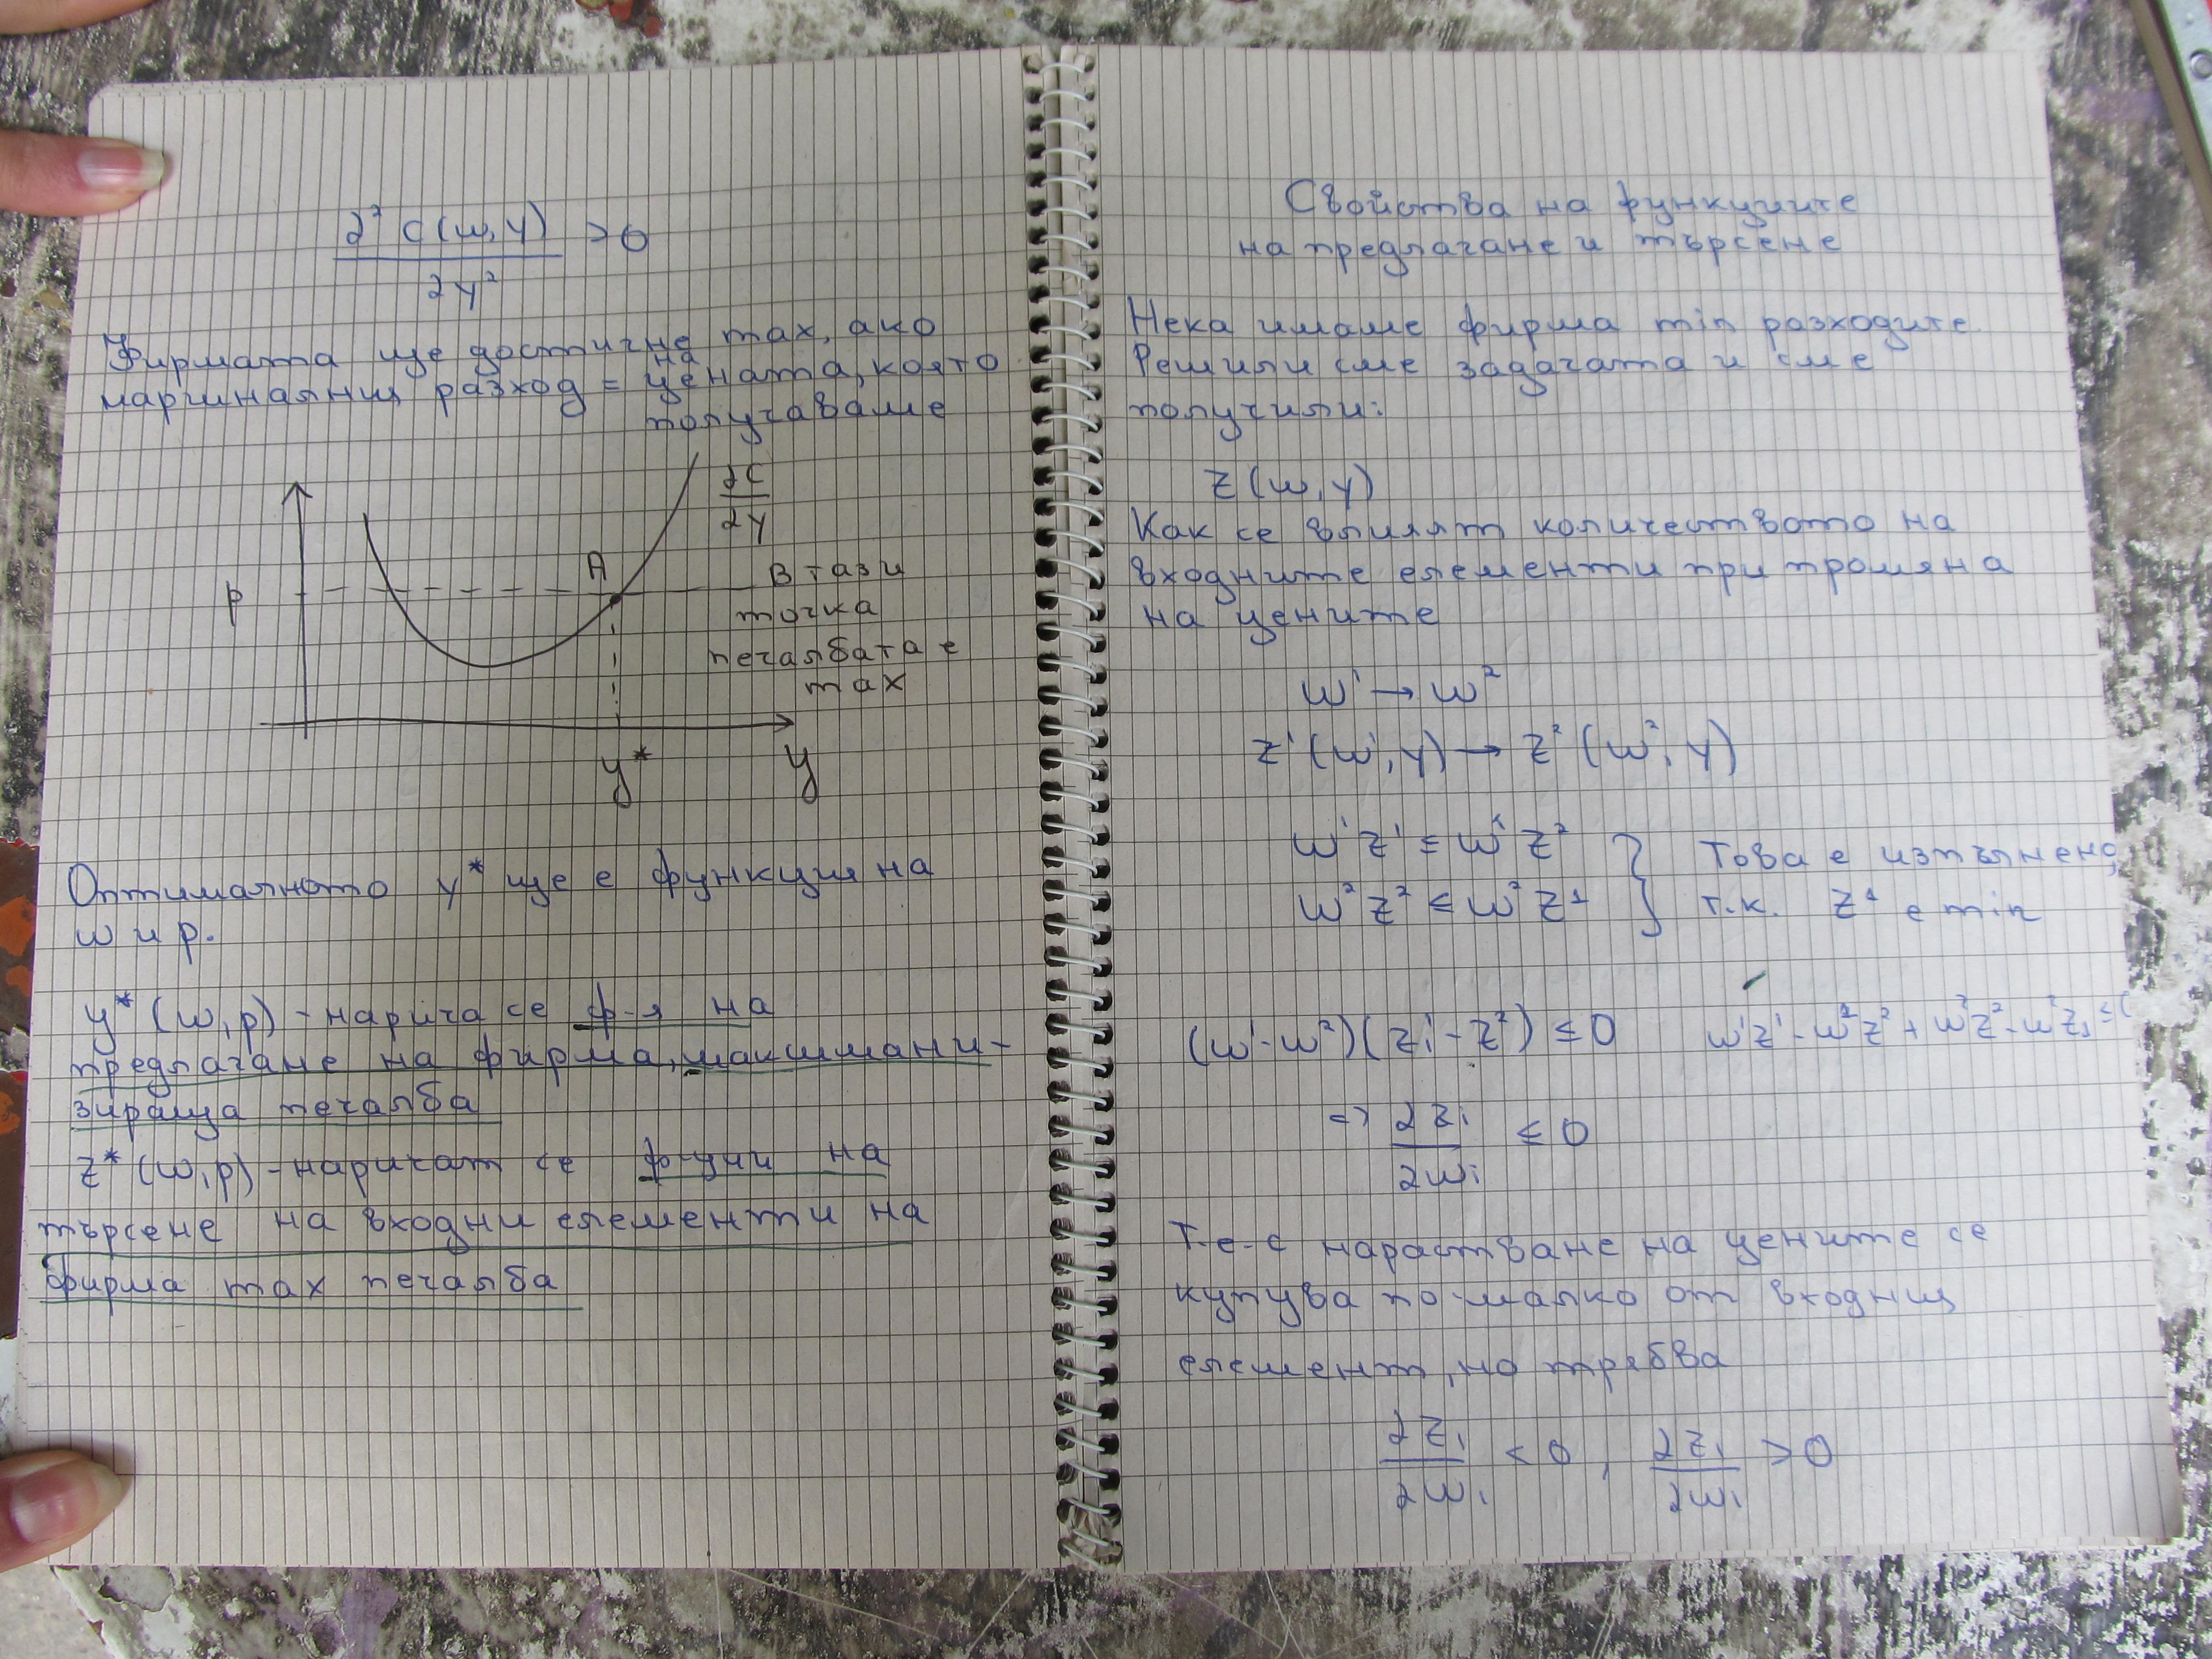 ∂² c(w,y) / ∂y² > 0
Фирмата ще достигне max, ако
маргиналния разход = на цената, която
получаваме
∂C / ∂y
A
p
В тази
точка
печалбата е
max
y* y
Оптималното y* ще е функция на
w и p.
y* (w,p) - нарича се ф-я на
предлагане на фирма, максимани-
зираща печалба
z* (w,p) - наричат се ф-уни на
търсене на входни елементи на
фирма max печалба
Свойства на функциите
на предлагане и търсене
Нека имаме фирма min разходите.
Решили сме задачата и сме
получили:
z (w,y)
Как се влият количеството на
входните елементи при промяна
на цените
w¹ → w²
z¹ (w¹, y) → z² (w², y)
w¹ z¹ ≤ w¹ z²
w² z² ≤ w² z¹
} Това е изпълнено
т.к. z¹ е min
(w¹ - w²)(z¹ᵢ - z²) ≤ 0 w¹z¹ - w²z² + w²z² - w²z₁ ≤ (
=> ∂zᵢ / ∂wᵢ ≤ 0
Т.е. с нарастване на цените се
купува по-малко от входния
елемент, но трябва
∂zᵢ / ∂wᵢ < 0, ∂zᵢ / ∂wᵢ > 0